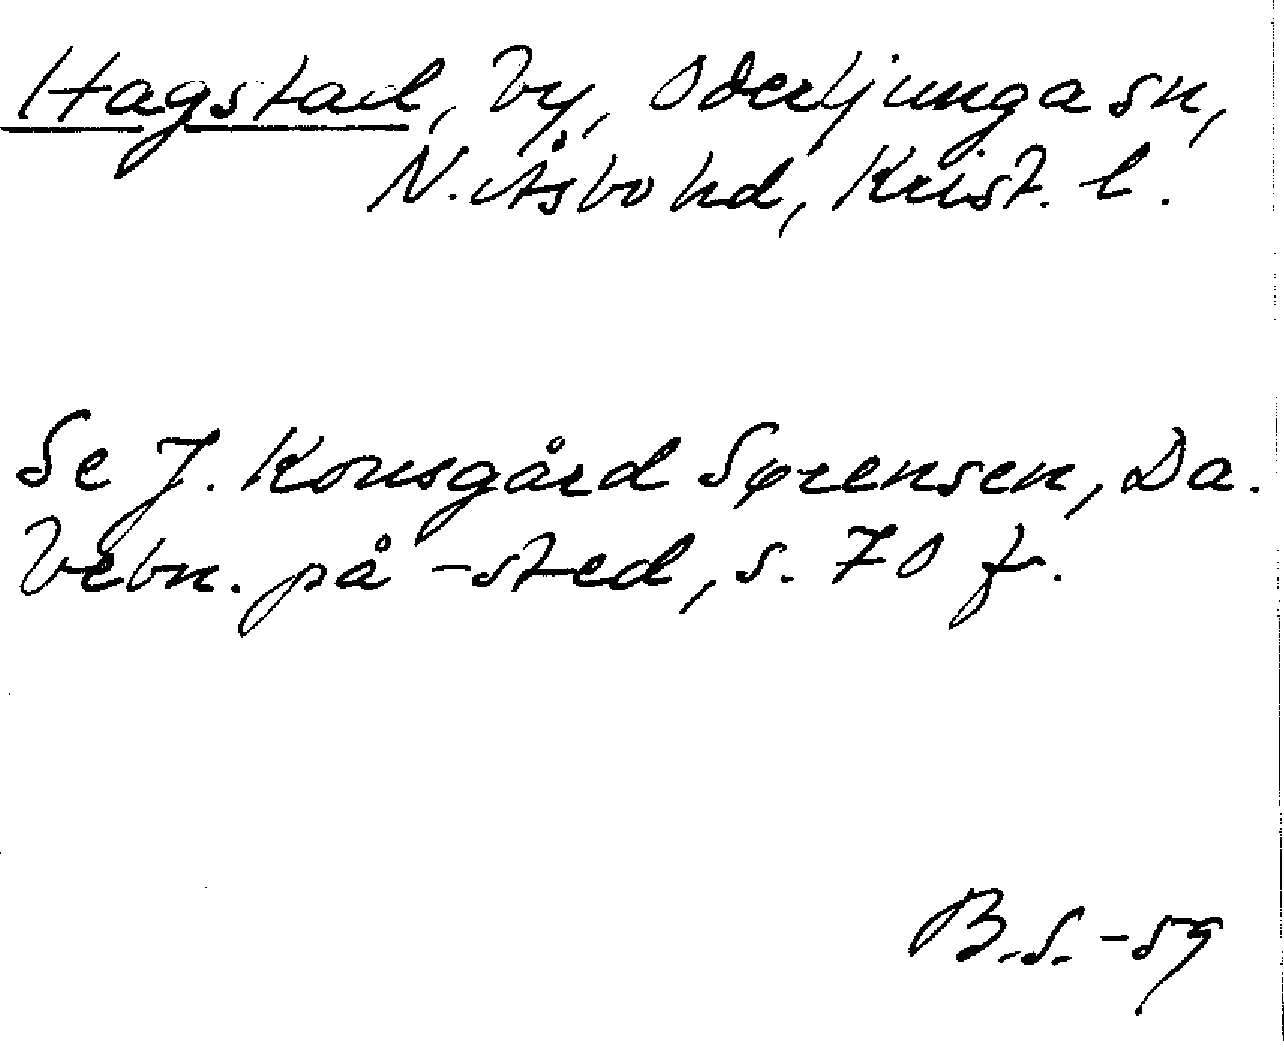 Hagstad, by, Oderljunga sn,
N. Åsbo hd, Krist. l.
Se J. Kousgård Sørensen, Da.
bebn. på -sted, s. 70 f.
B.S. -59